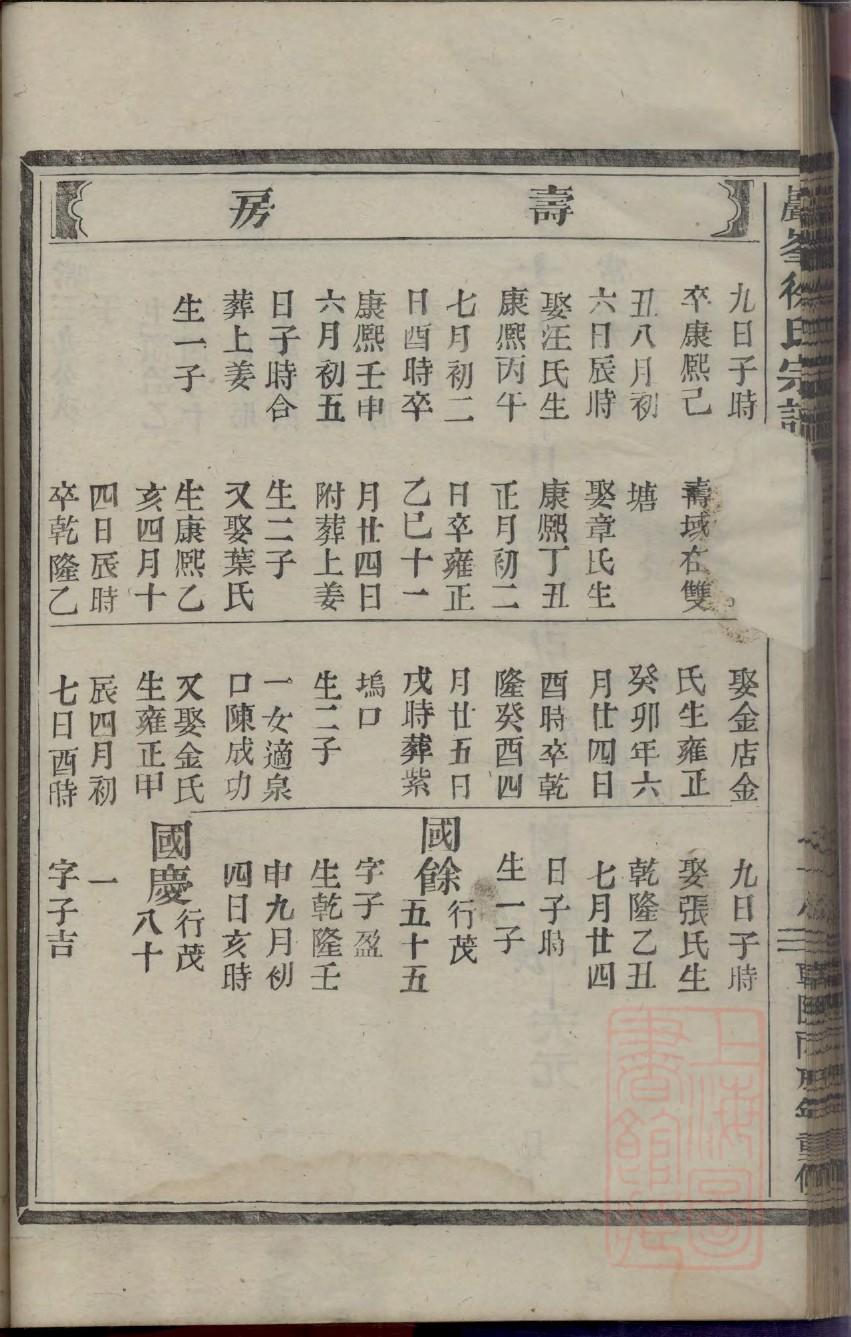 壽房
九日子時
卒康熙己
丑八月初
六日辰時
娶汪氏生
康熙丙午
七月初二
日酉時卒
康熙壬申
六月初五
日子時合
葬上姜
生一子
壽域在雙
塘
娶章氏生
康熙丁丑
正月初二
日卒雍正
乙巳十一
月廿四日
附葬上姜
生二子
又娶葉氏
生康熙乙
亥四月十
四日辰時
卒乾隆乙
娶金店金
氏生雍正
癸卯年六
月廿四日
酉時卒乾
隆癸酉四
月廿五日
戌時葬紫
塢口
生二子
一女適泉
口陳成功
又娶金氏
生雍正甲
辰四月初
七日酉時
九日子時
娶張氏生
乾隆乙丑
七月廿四
日子時
生一子
國餘行茂五十五
字子盈
生乾隆壬
申九月初
四日亥時
國慶行茂八十
一
字子吉
徐氏宗譜
上海圖書館藏